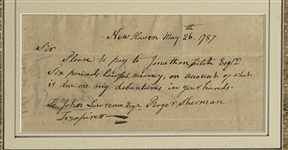 New Haven May 26.th 1787
Sir
Please to pay to Jonathan Esqr.
Six pounds lawful money, on account of what
is due on my debentures in your hands.
To John Lawrence Esqr. Roger Sherman
Treasurer